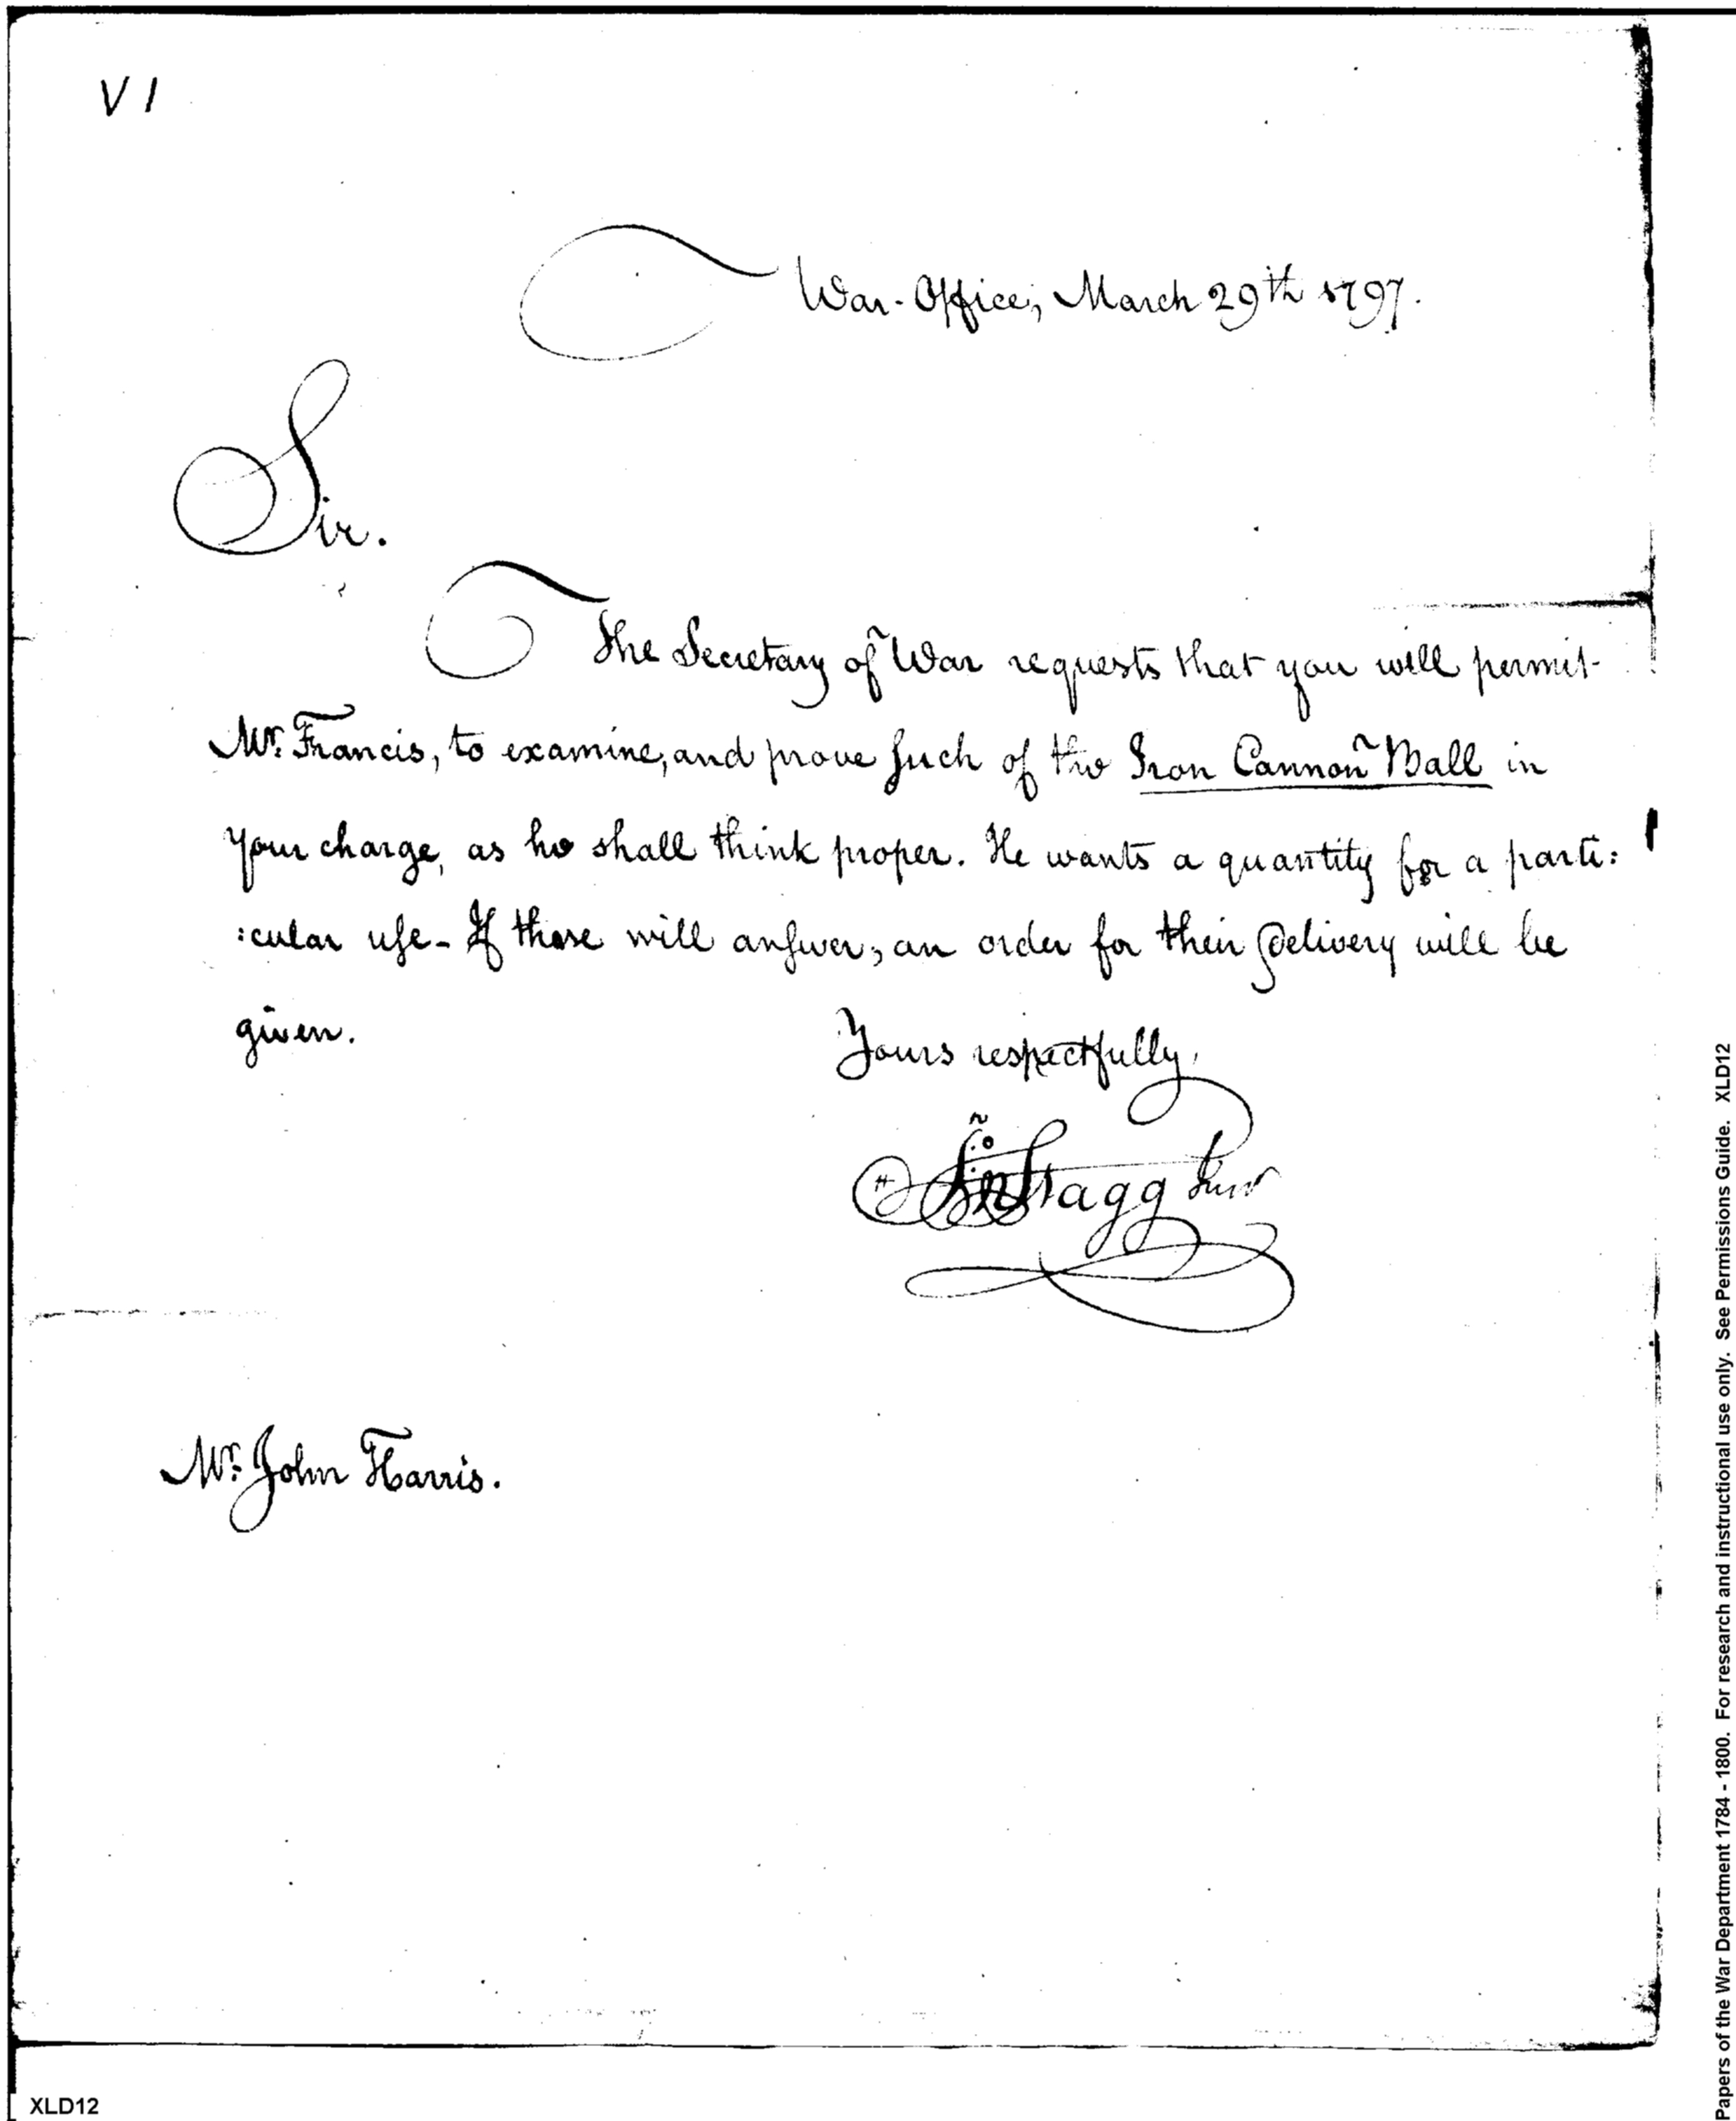 VI
War-Office, March 29th 1797.
Sir.
The Secretary of War requests that you will permit
Mr. Francis, to examine, and prove such of the Iron Cannon Ball in
your charge, as he shall think proper. He wants a quantity for a parti:
:cular use - If these will answer, an order for their Delivery will be
given.
Yours respectfully,
Jno Stagg Junr
Mr. John Harris.
XLD12
Papers of the War Department 1784 - 1800. For research and instructional use only. See Permissions Guide. XLD12